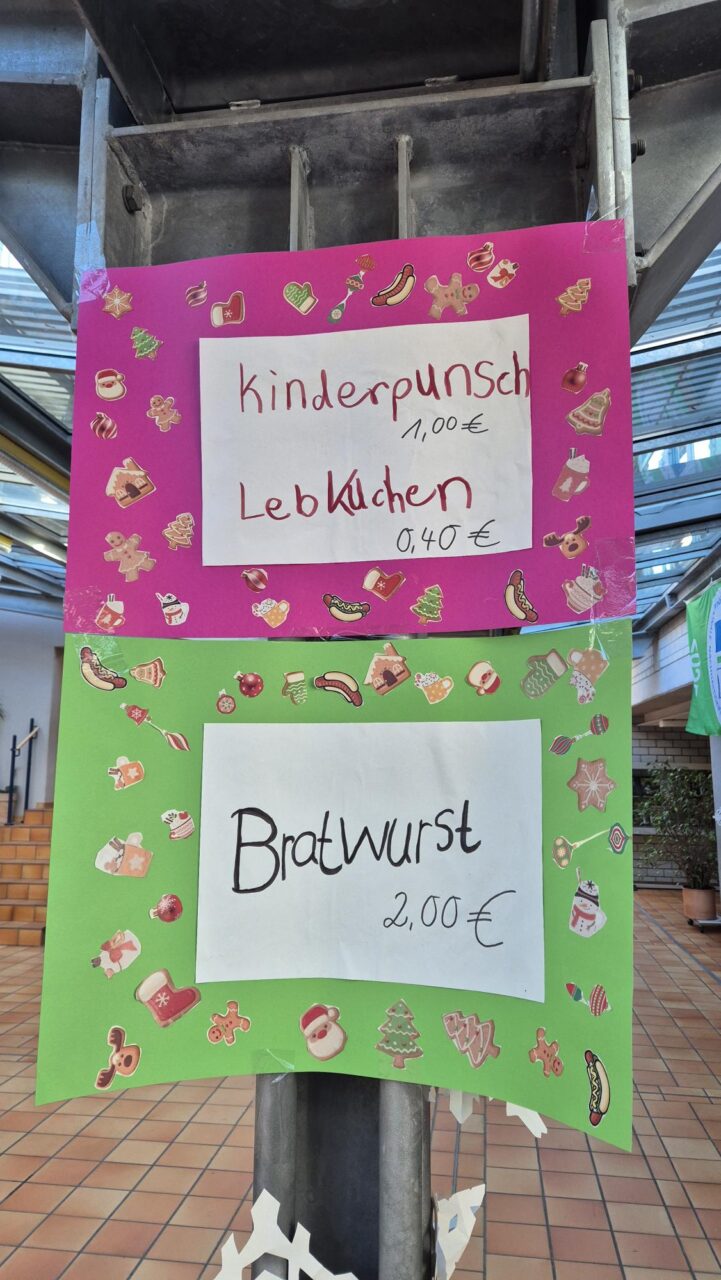 Kinderpunsch
1,00 €
Lebkuchen
0,40 €
Bratwurst
2,00 €